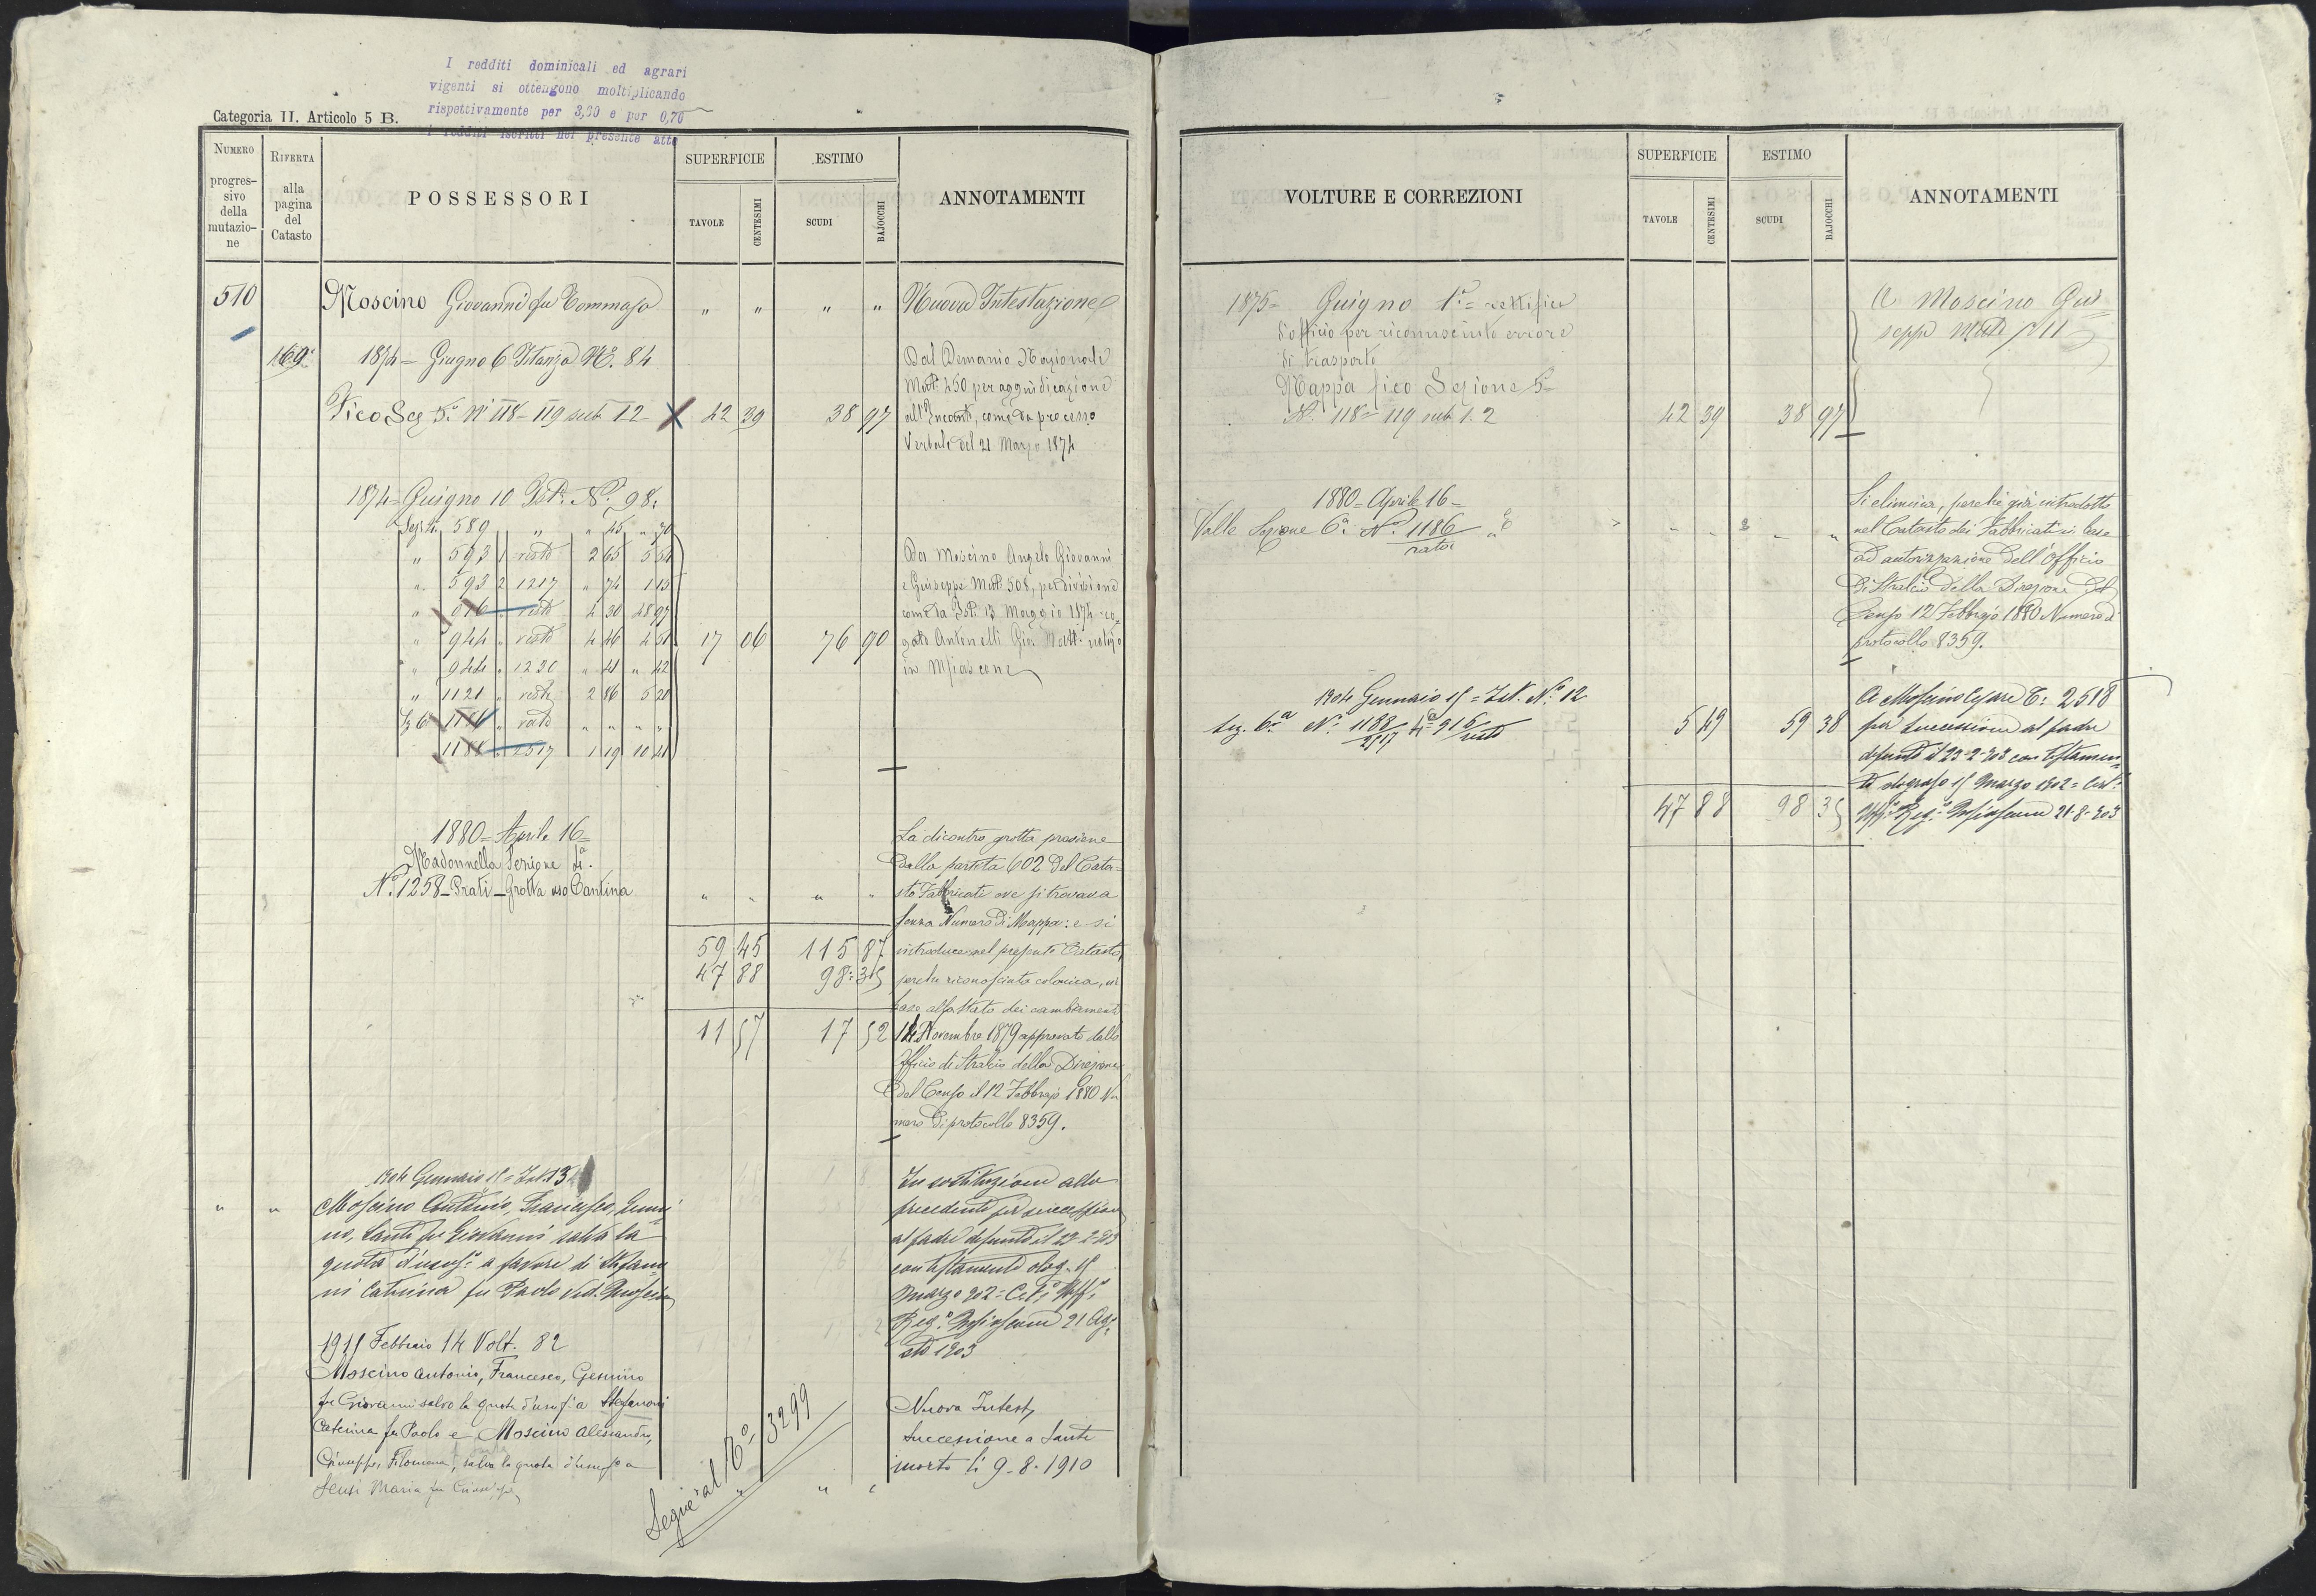 I redditi dominicali ed agrari
vigenti si ottengono moltiplicando
rispettivamente per 3,60 e per 0,76
i redditi iscritti nel presente atto
Categoria II. Articolo 5 B.
NUMERO progres-sivo della mutazio-ne
RIFERTA alla pagina del Catasto
POSSESSORI
SUPERFICIE
TAVOLE
CENTESIMI
ESTIMO
SCUDI
BAJOCCHI
ANNOTAMENTI
510 Moscino Giovanni fu Tommaso " " " " Nuova Intestazione
169 1874 = Giugno 6 Istanza N. 84
Dal Demanio Nazionale
Matr. 450 per aggiudicazione
Vico Sez 5. N 118 - 119 sub 1 2 42 39 38 97
all'Incanti, come da processo
Verbale del 21 Marzo 1874
1874 = Giugno 10 Ist. N. 98.
589 " " 45 " 70
" 593 1 resto 2 65 5 54
" 593 2 1217 " 74 1 43
" 616 resto 4 30 48 97
" 944 " resto 4 46 4 51
" 944 " 1230 " 41 " 42
" 1121 " resto 2 86 5 21
Sz 6 resto " " " "
2517 1 19 10 41
17 06 76 90
Da Moscino Angelo Giovanni
e Giuseppe Matr. 508, per divisione
come da Ist. 13 Maggio 1874 ro-
gato Antonelli Gio. Batt. notajo
in Mfiascone
1880 = Aprile 16 =
Madonnella Sezione 4ª.
N. 1258 - Prati - Grotta uso Cantina " " " "
La dicontro grotta proviene
dalla partita 602 del Cata-
sto Fabbricati ove si trovava
senza Numero di Mappa: e si
introduce nel presente Catasto,
perche riconosciuta colonica, in
base allo stato dei cambiamenti
14 Novembre 1879 approvato dallo
Officio di Stralcio della Direzione
del Censo il 12 Febbrajo 1880 Nu
mero di protocollo 8359.
59 45 115 87
47 88 98 35
11 57 17 52
1904 Gennaio 15 = Ist. 13
" " Moscino Antonio, Francesco, Gemi
no, Santi fu Giovanni salva la
quota d'usuf. a favore di Stefano
ni Caterina fu Paolo Ved. Moscino
In sostituzione alla
precedente per successione
al padre defunto il 23-2-903
con testamento olog. 15
Marzo 902 = Cert. Uff.
Reg. Mfiascone 21 Ago
sto 1903
1911 Febbraio 14 Volt. 82
Moscino Antonio, Francesco, Gemino
fu Giovanni salvo la quota d'usuf. a Stefanoni
Caterina fu Paolo e Moscino Alessandro,
Giuseppe, Filomena, salva la quota d'usuf. a
Sensi Maria fu Giuseppe
Segue al N.º 3299
Nuova Intest.
Successione a Sante
morto li 9 - 8 - 1910
VOLTURE E CORREZIONI
SUPERFICIE
TAVOLE
CENTESIMI
ESTIMO
SCUDI
BAJOCCHI
ANNOTAMENTI
1875 = Giugno 1º = rettifica
d'officio per riconosciuto errore
di trasporto
Mappa Vico Sezione 5ª
N. 118 = 119 sub 1. 2 42 39 38 97
A Moscino Giu
seppe Matr. 511
1880 = Aprile 16 =
Valle Sezione 6ª N. 1186 rata " " " "
Si elimina, perchè già introdotto
nel Catasto dei Fabbricati in base
ad autorizzazione dell'Officio
di Stralcio della Direzione del
Censo 12 Febbrajo 1880 Numero di
protocollo 8359.
1904 Gennaio 15 = Ist. N. 12
Sez. 6ª N. 1188/2517 4ª 916/resto 5 49 59 38
A Moscino Cesare C. 2518
per successione al padre
defunto il 23-2-903 con testamen
to olografo 15 Marzo 1902 = Cert.
Uff. Reg. Mfiascone 21-8-903
47 88 98 35